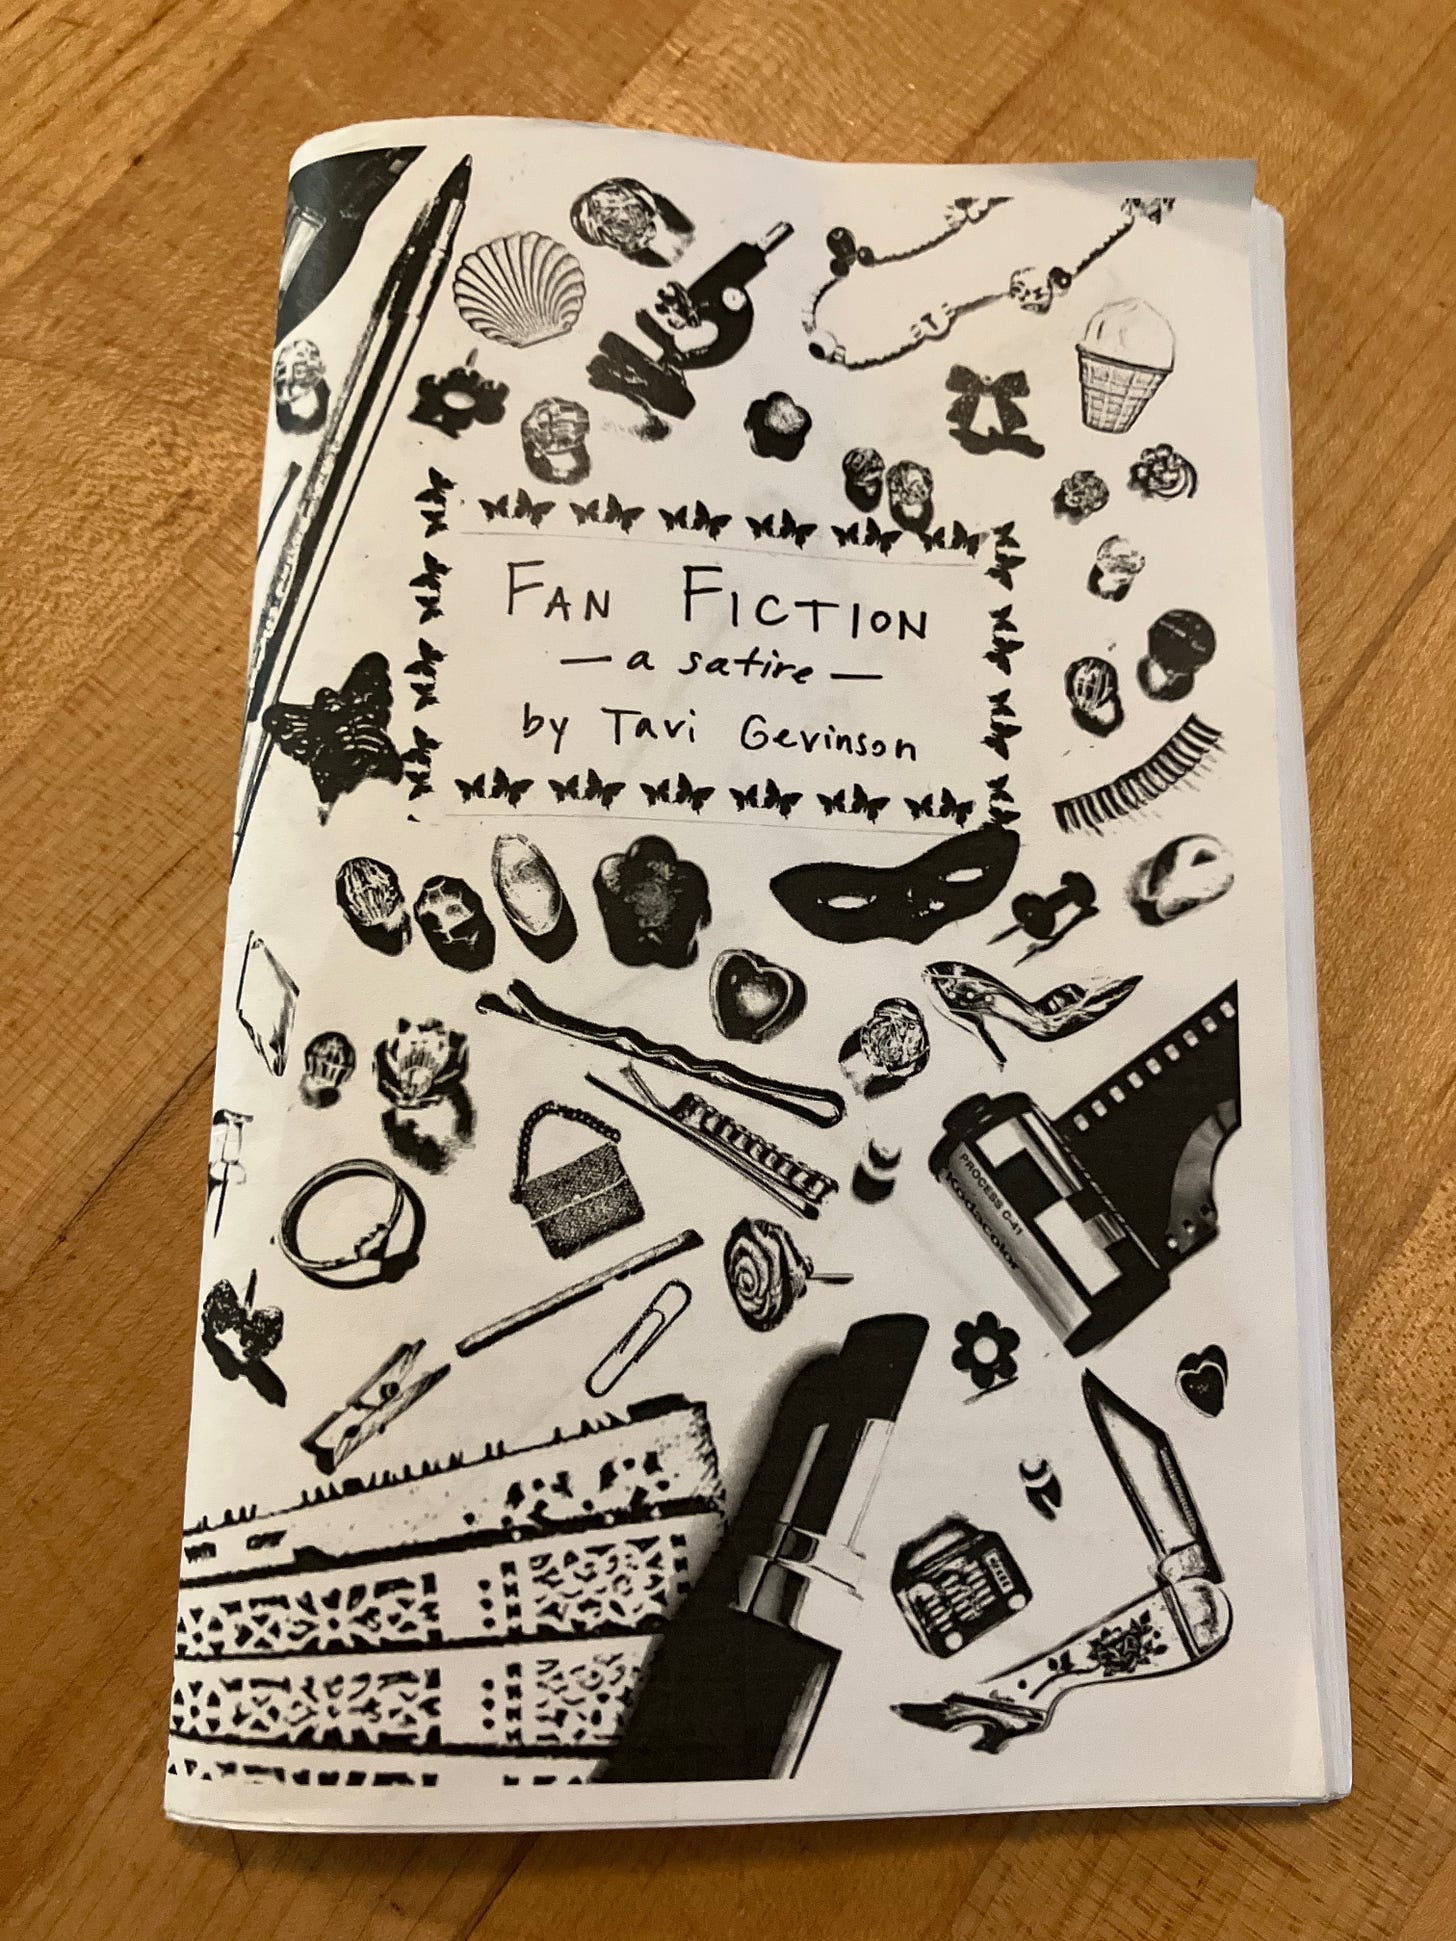 FAN FICTION
— a satire —
by Tavi Gevinson
PROCESS C-41
Kodacolor